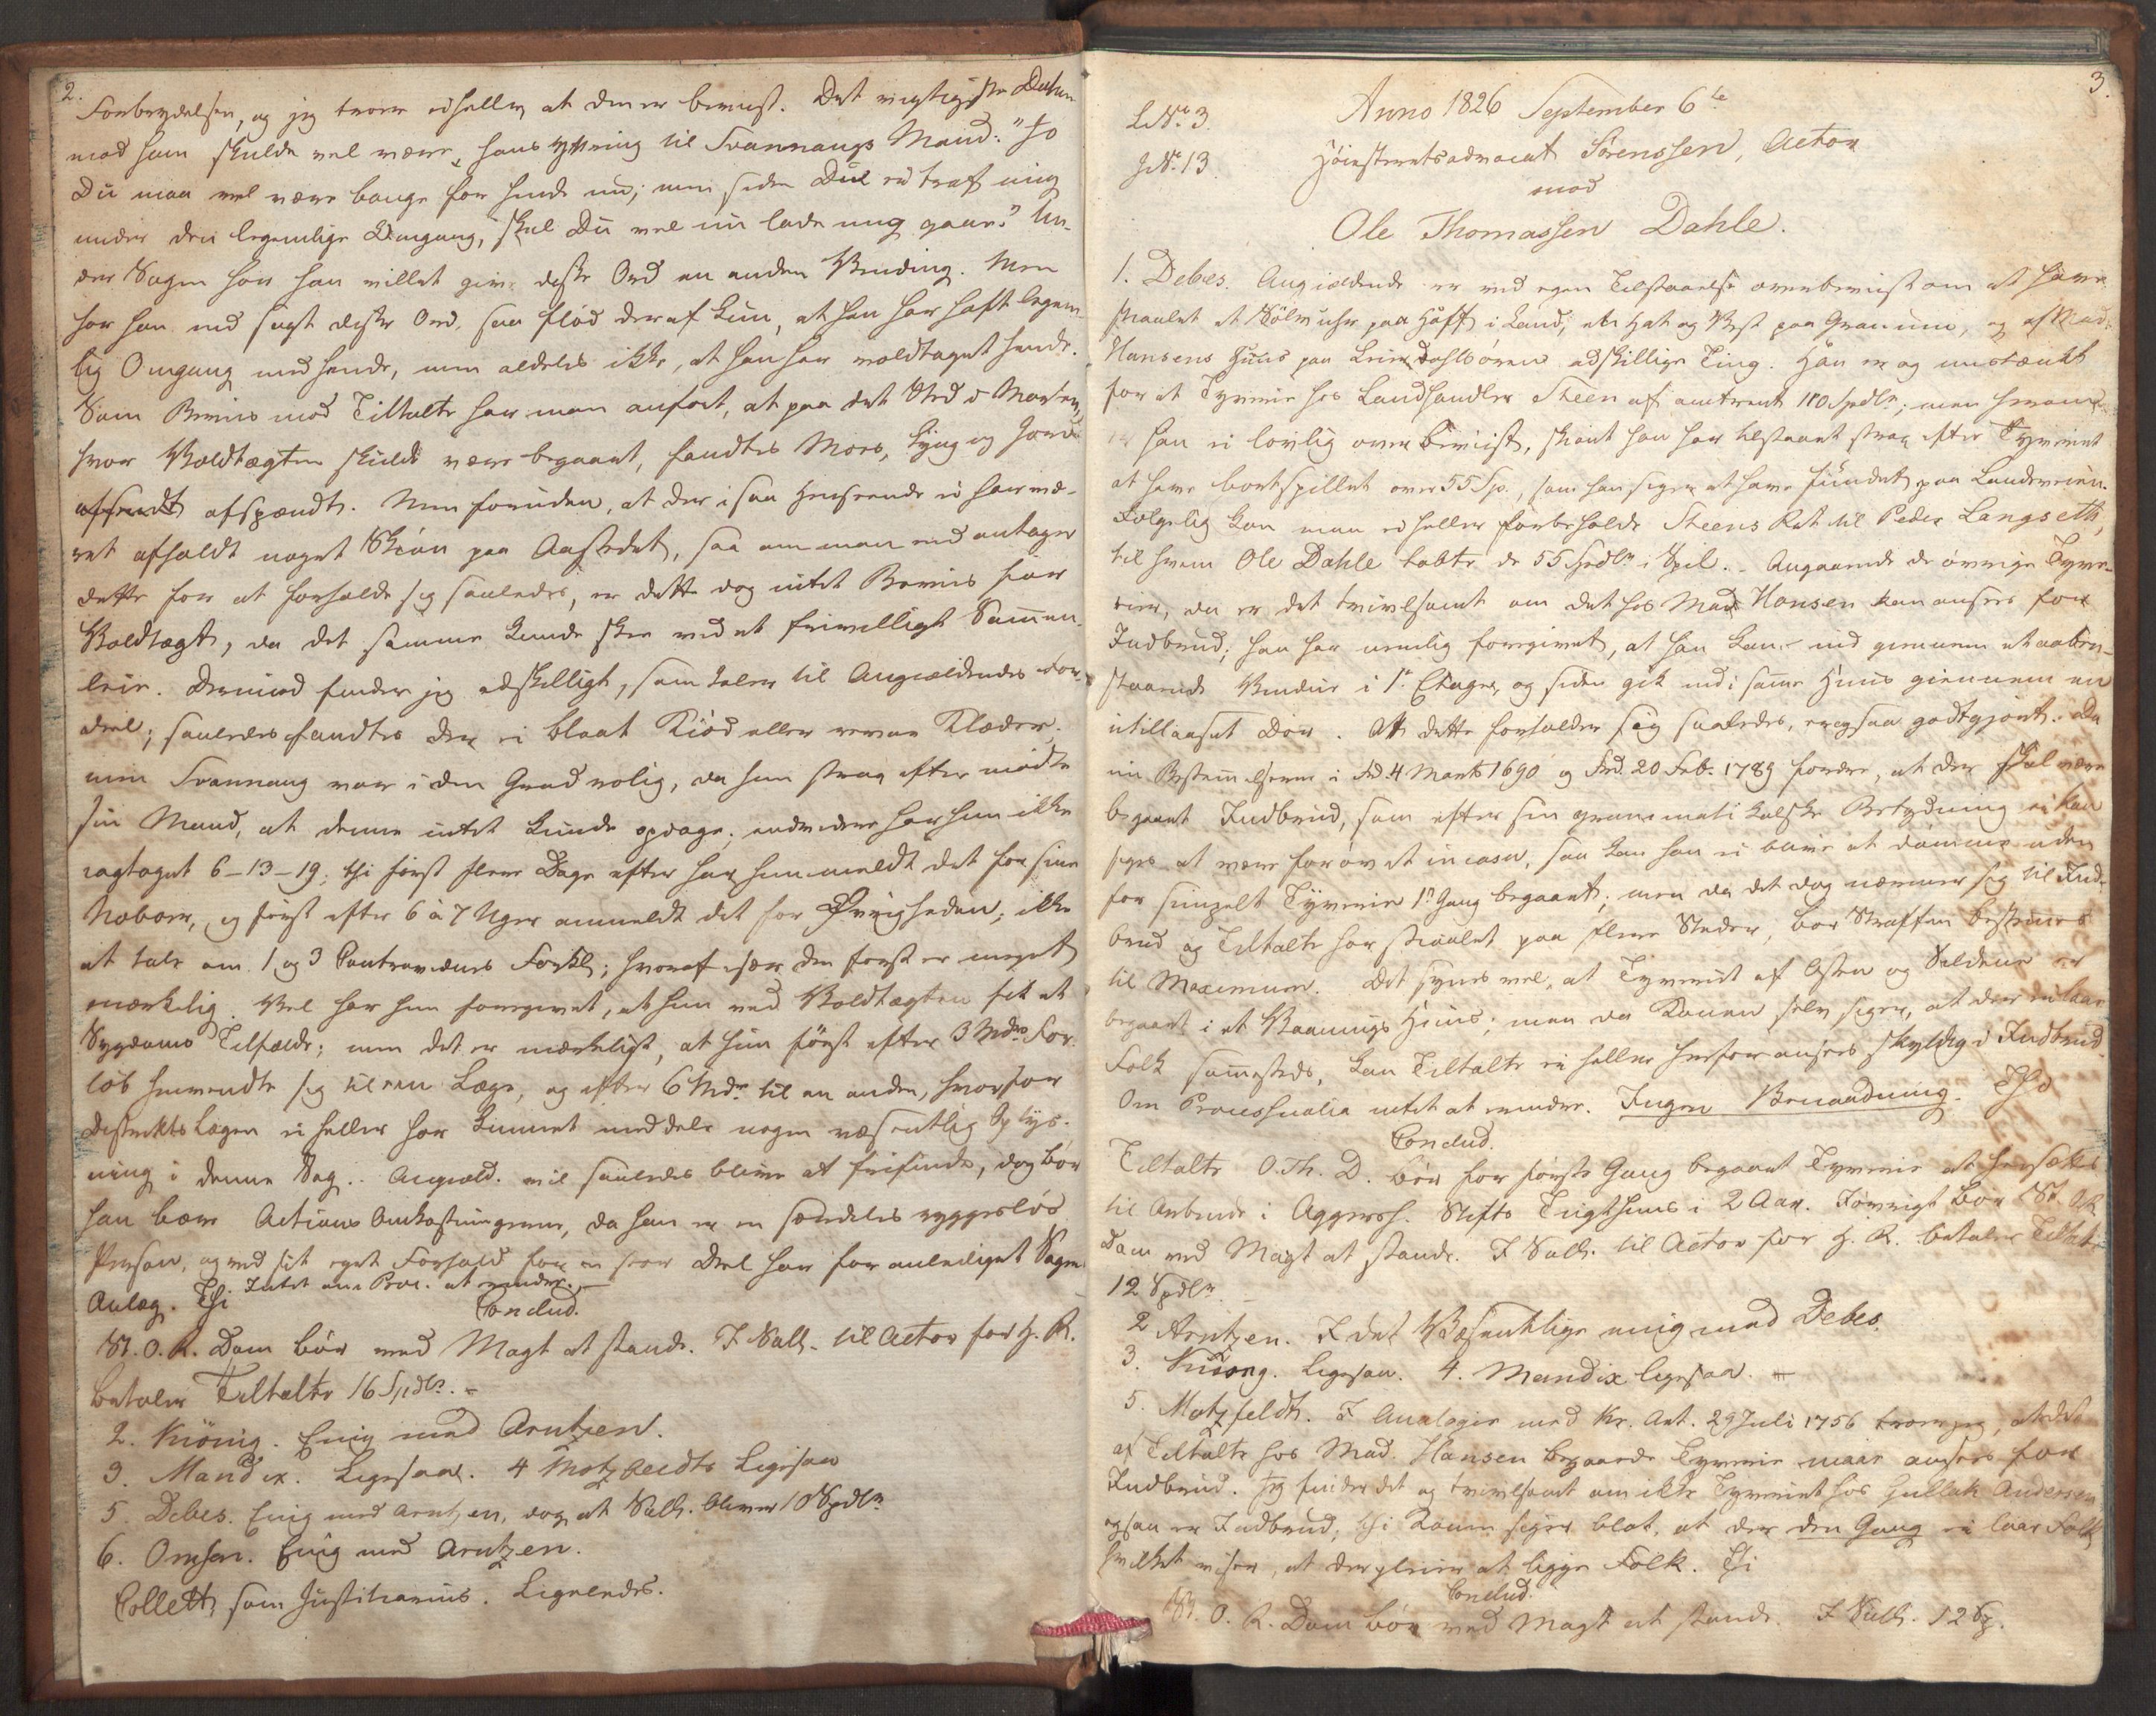 2.
Forbrydelsen, og jeg troer ei heller, at den er beviist. Det vigtigste Datum
mod ham skulde vel være hans Yttring til Svannaugs Mand: "Jo
Du maa vel være bange for hende nu; men siden Du ei traf mig
under den legemlige Omgang, skal Du vel nu lade mig gaae." Un-
der Sagen har han villet give disse Ord en anden Vending. Men
har han end sagt disse Ord, saa flød deraf kun, at han har haft legem-
lig Omgang med hende, men aldeles ikke, at han har voldtaget hende.
Som Beviis mod Tiltalte har man anført, at paa det Sted i Marken,
hvor Voldtægten skulde være begaaet, fandtes Moes, Lyng og Jord
afspændt. Men foruden, at der i saa Henseende ei har væ-
ret afholdt noget Skiøn paa Aastedet, saa om man end antager
dette for at forholde sig saaledes, er dette dog intet Beviis for
Voldtægt, da det samme kunde skee ved et frivilligt Sammen-
leie. Derimod finder jeg adskilligt, som taler til Angieldendes For-
deel; saaledes fandtes der ei blaat Kiød eller revne Klæder;
men Svannaug var i den Grad rolig, da hun strax efter mødte
sin Mand, at denne intet kunde opdage; endvidere har hun ikke
iagtaget 6-13-19; thi først flere Dage efter har hun meldt det for sine
Naboer, og først efter 6 à 7 Uger anmeldt det for Øvrigheden; ikke
at tale om 1 og 3 Contravidners Forkl; hvoraf især den første er meget
mærkelig. Vel har hun foregivet, at hun ved Voldtægten fik et
Sygdoms Tilfælde; men det er mærkeligt, at hun først efter 3 Mdrs For-
løb henvendte sig til een Læge, og efter 6 Mdr til en anden, hvorfor
DistriktsLægen ei heller har kunnet meddele nogen væsentlig Oplys-
ning i denne Sag. Angield. vil saaledes blive at frifinde, dog bør
han bære Actions Omkostningerne, da han er en særdeles ryggesløs
Person, og ved sit eget Forhold for en stor Deel har foranlediget Sagens
Anlæg. Intet om Proc. at erindre. Thi
Conclud.
St. O. R. Dom bør ved Magt at stande. I Sall. til Actor for H. R.
betaler Tiltalte 16 Spdlr.
2. Kiönig. Enig med Arntzen.
3. Mandix. Ligesaa. 4 Motzfeldt Ligesaa
5. Debes. Enig med Arntzen, dog at Sall. bliver 10 Spdlr
6. Omsen. Enig med Arntzen.
Collett, som Justitiarius. Ligeledes.
3.
L. No. 3.
J. No. 13.
Anno 1826 September 6te
Høiesteretsadvocat Sørenssen, Actor
mod
Ole Thomassen Dahle.
1. Debes. Angieldende er ved egen Tilstaaelse overbeviist om at have
stiaalet et Sølvuhr paa Hoff i Land, en Hat og Vest paa Granum, og af Mad.
Hansens Huus paa Leirdahlsøren adskillige Ting. Han er og mistænkt
for et Tyverie hos Landhandler Steen af omtrent 110 Spdlr; men herom
er han ei lovlig overbeviist, skiønt han har tilstaaet strax efter Tyveriet
at have bortspillet over 55 Sp., som han siger at have fundet paa Landeveien.
Følgelig kan man ei heller forbeholde Steens Ret til Peder Langseth,
til hvem Ole Dahle tabte de 55 Spdlr i Spil. Angaaende de øvrige Tyve-
rier, da er det tvivlsomt om det hos Mad Hansen kan ansees for
Indbrud; han har nemlig foregivet, at han kom ind giennem et aaben-
staaende Vindue i 1ste Etage, og siden gik ind i samme Huus giennem en
utillaaset Dør. At dette forholder sig saaledes, er ogsaa godtgjort. Da
nu Bestemmelserne i Frd. 4 Marts 1690 og Frd. 20 Feb. 1789 fordre, at der skal være
begaaet Indbrud, som efter sin grammatikalske Betydning ei kan
siges at være forøvet in casu, saa kan han ei blive at dømme uden
for simpelt Tyverie 1ste Gang begaaet; men da det dog nærmer sig til Ind-
brud og Tiltalte har stiaalet paa flere Steder, bør Straffen bestemmes
til Maximum. Det synes vel, at Tyveriet af Osten og Sildene er
begaaet i et Vaanings Huus; men da Konen selv siger, at der ei laae
Folk sammesteds, kan Tiltalte ei heller herfor ansees skyldig i Indbrud.
Om Processualia intet at erindre. Ingen Benaadning. Thi
Conclud.
Tiltalte O. Th. D. bør for første Gang begaaet Tyverie at hensættes
til Arbeide i Aggersh. Stifts Tugthuus i 2 Aar. Iøvrigt bør St. O. R.
Dom ved Magt at stande. I Sall. til Actor for H. R. betaler Tiltalte
12 Spdlr.
2 Arntzen. I det Væsentlige enig med Debes.
3. Kiönig. Ligesaa. 4. Mandix ligesaa.
5. Motzfeldt. I Analogie med Kr. Art. 29 Juli 1756 troer jeg, at det
af Tiltalte hos Mad. Hansen begaaede Tyverie maae ansees for
Indbrud. Jeg finder det og tvivlsomt om ikke Tyveriet hos Gullak Andersen
ogsaa er Indbrud; thi Konen siger blot, at der den Gang ei laae Folk
hvilket viser, at der pleier at ligge Folk. Thi
Conclud.
St. O. R. Dom bør ved Magt at stande. I Sall. 12 Sp.